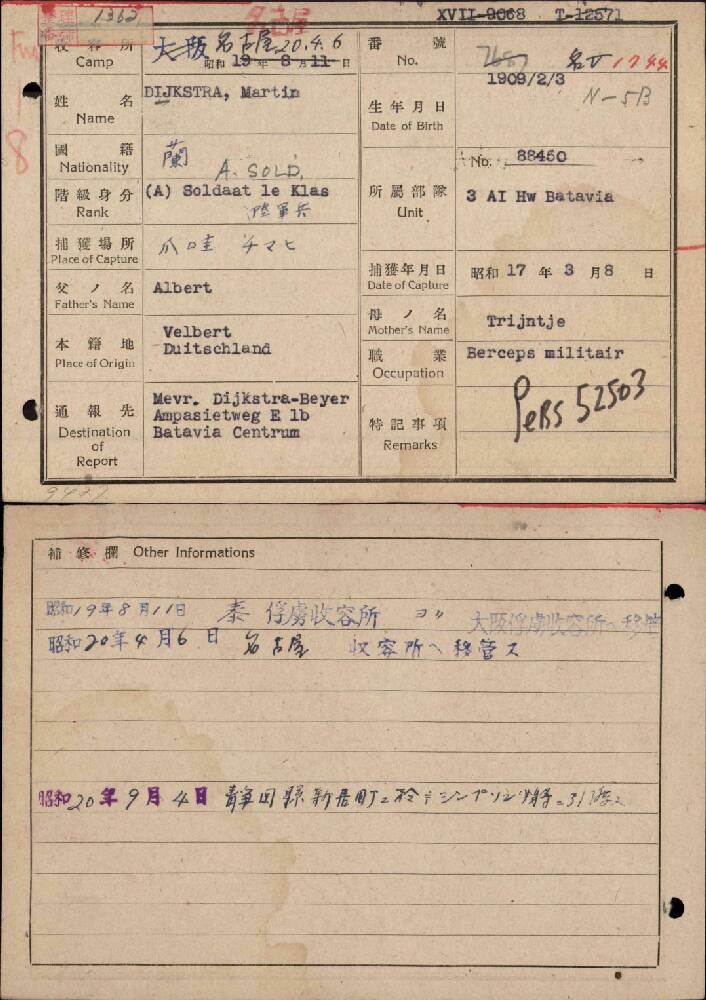 名古屋
整理番號 1362
XVII-9068 T-12571
收容所 Camp
大阪 名古屋 20.4.6
昭和 19 年 8 月 11 日
番號 No.
名古 1744
姓名 Name
DIJKSTRA, Martin
生年月日 Date of Birth
1909/2/3
N-5B
國籍 Nationality
蘭
A. SOLD.
No. 88450
階級身分 Rank
(A) Soldaat 1e Klas
陸軍兵
所屬部隊 Unit
3 AI Hw Batavia
捕獲場所 Place of Capture
爪哇 チマヒ
捕獲年月日 Date of Capture
昭和 17 年 3 月 8 日
父ノ名 Father's Name
Albert
母ノ名 Mother's Name
Trijntje
本籍地 Place of Origin
Velbert
Duitschland
職業 Occupation
Berceps militair
通報先 Destination of Report
Mevr. Dijkstra-Beyer
Ampasietweg E 1b
Batavia Centrum
特記事項 Remarks
PeBS 52503
補修欄 Other Informations
昭和19年8月11日 泰俘虜收容所ヨリ大阪俘虜收容所ヘ移管
昭和20年4月6日 名古屋收容所ヘ移管ス
昭和20年9月4日 靜岡縣新居町ニ於テシンプソン